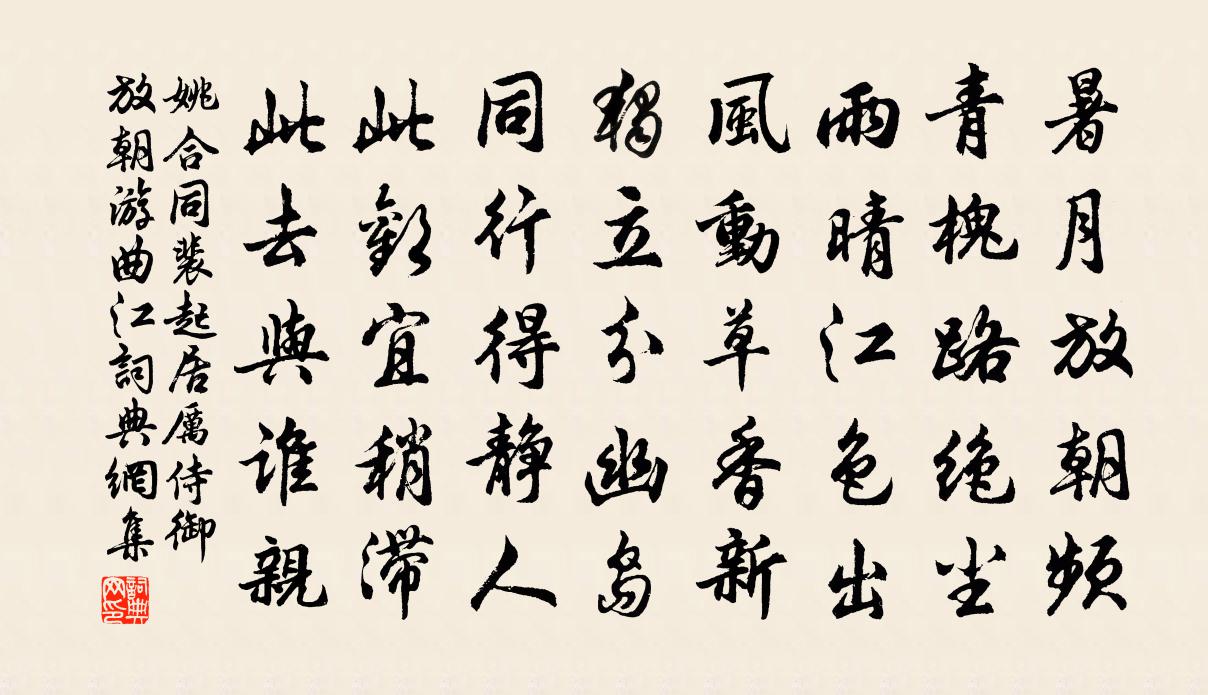 暑月放朝頻
青槐路绝尘
雨晴江色出
風動草香新
獨立分幽島
同行得静人
此歡宜稍滯
此去與誰親
姚合同裴起居厲侍御
放朝游曲江詞典網集
詞典网印